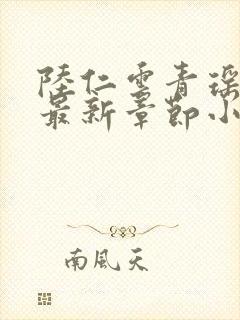 陸仁雲青瑶
最新章節小
南風天